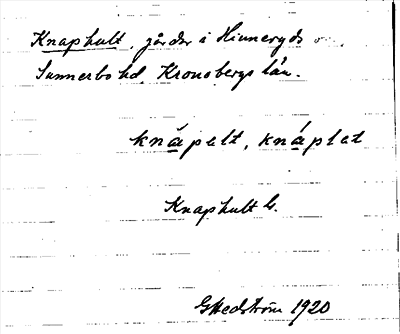 Knaphult, gårdar i Hinneryds
Sunnerbo hd Kronobergs län.
knápelt, knáplet
Knaphult G.
G Hedström 1920